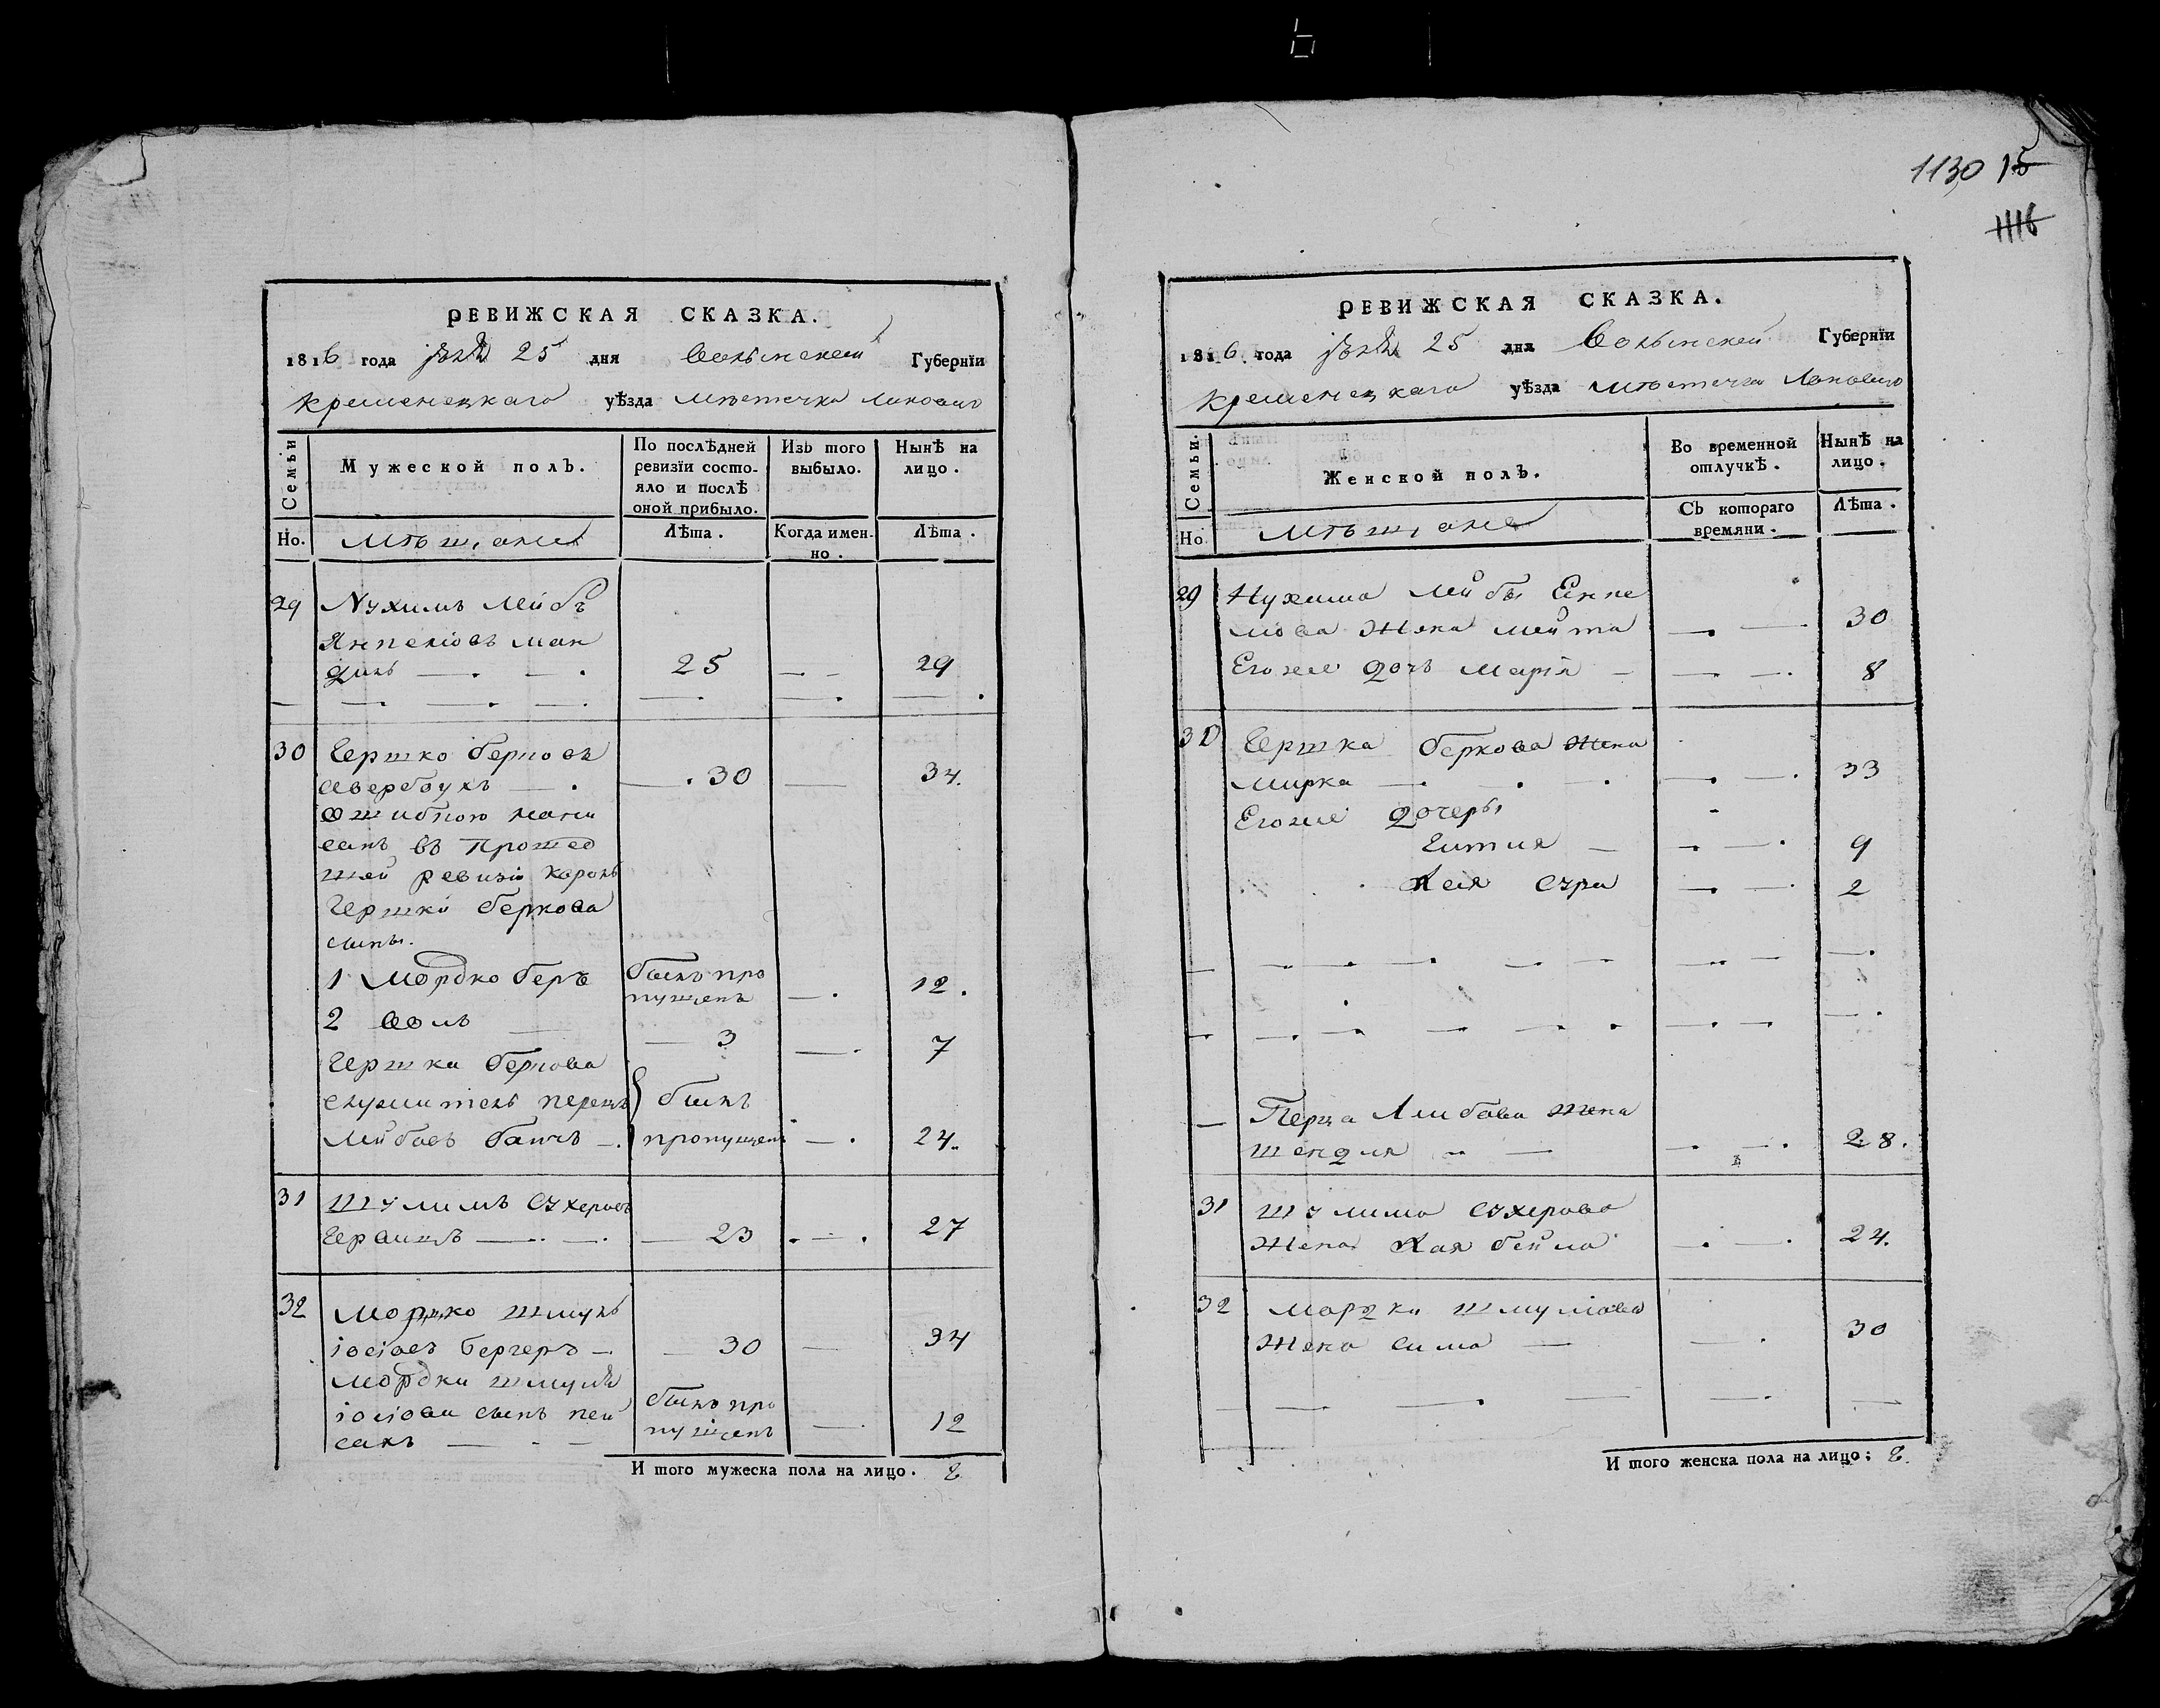 1130 15
1116
РЕВИЖСКАЯ СКАЗКА.
1816 года 25 дня Волынской Губернїи
Кременецкаго уѣзда мѣстечка
Семьи
Мужеской полъ.
По послѣдней ревизїи состо-
яло и послѣ оной прибыло.
Изъ того выбыло.
Нынѣ на лицо.
Но. мѣщане
Лѣта.
Когда имен-
но.
Лѣта.
29 Нухимъ Лейбъ
Янкеліовъ ман
диль 25 29
30 Гершко Берковъ
Авербухъ 30 34.
Ошибкою напи
санъ въ прошед
шей ревизіи король
Гершки Беркова
сыны.
1 Мордко Беръ был про
пущенъ 12.
2 Волъ 3 7
Гершка Беркова
служитель перецъ былъ
Лейбовъ пропущенъ 24.
31 Шулимъ Сухеровъ
23 27
32 Мордко Шмуль
іосіовъ Бергеръ 30 34
Мордки Шмуля
іосіова сынъ пей
сахъ былъ про
пущенъ 12
И того мужеска пола на лицо. 8
РЕВИЖСКАЯ СКАЗКА.
1816 года 25 дня Волынской Губернїи
Кременецкаго уѣзда мѣстечка
Семьи.
Женской полъ.
Во временной отлучкѣ.
Нынѣ на лицо.
Но. мѣщане
Съ котораго времяни.
Лѣта.
29 Нухима Лейбы Янке
лова жена Мейта 30
Егоже дочь Марія 8
30 Гершка Беркова жена
Мирка 33
Егоже дочеры
Гитля 9
Хая Сура 2
Перца Лейбова жена
Шендля 28.
31 Шулима Сухерова
жена Хая Бейла 24.
32 Мордки Шмулiова
жена Сима 30
И того женска пола на лицо: 8.